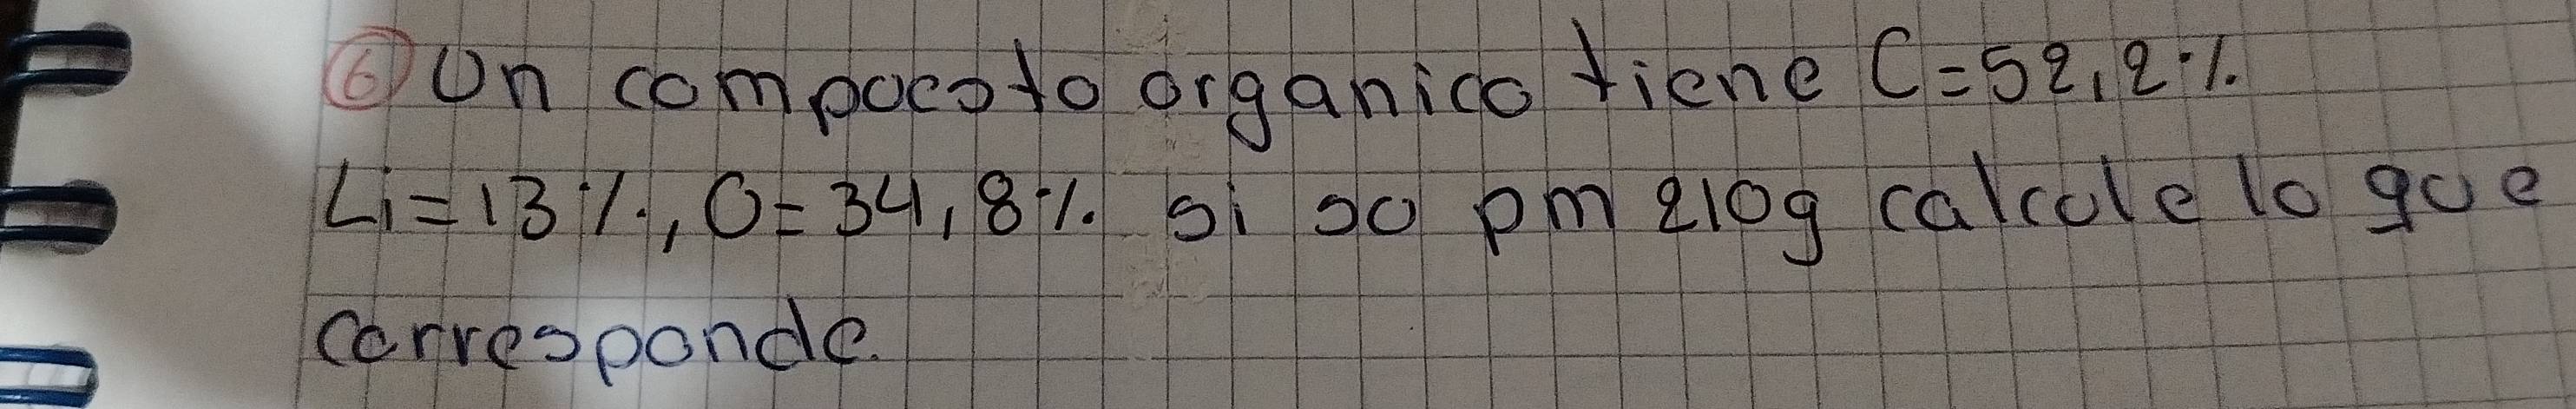 6 Un compuesto organico tiene C=52,2%.
Li=13%, O=34,8% si su pm 210g calcule lo que
corresponde.